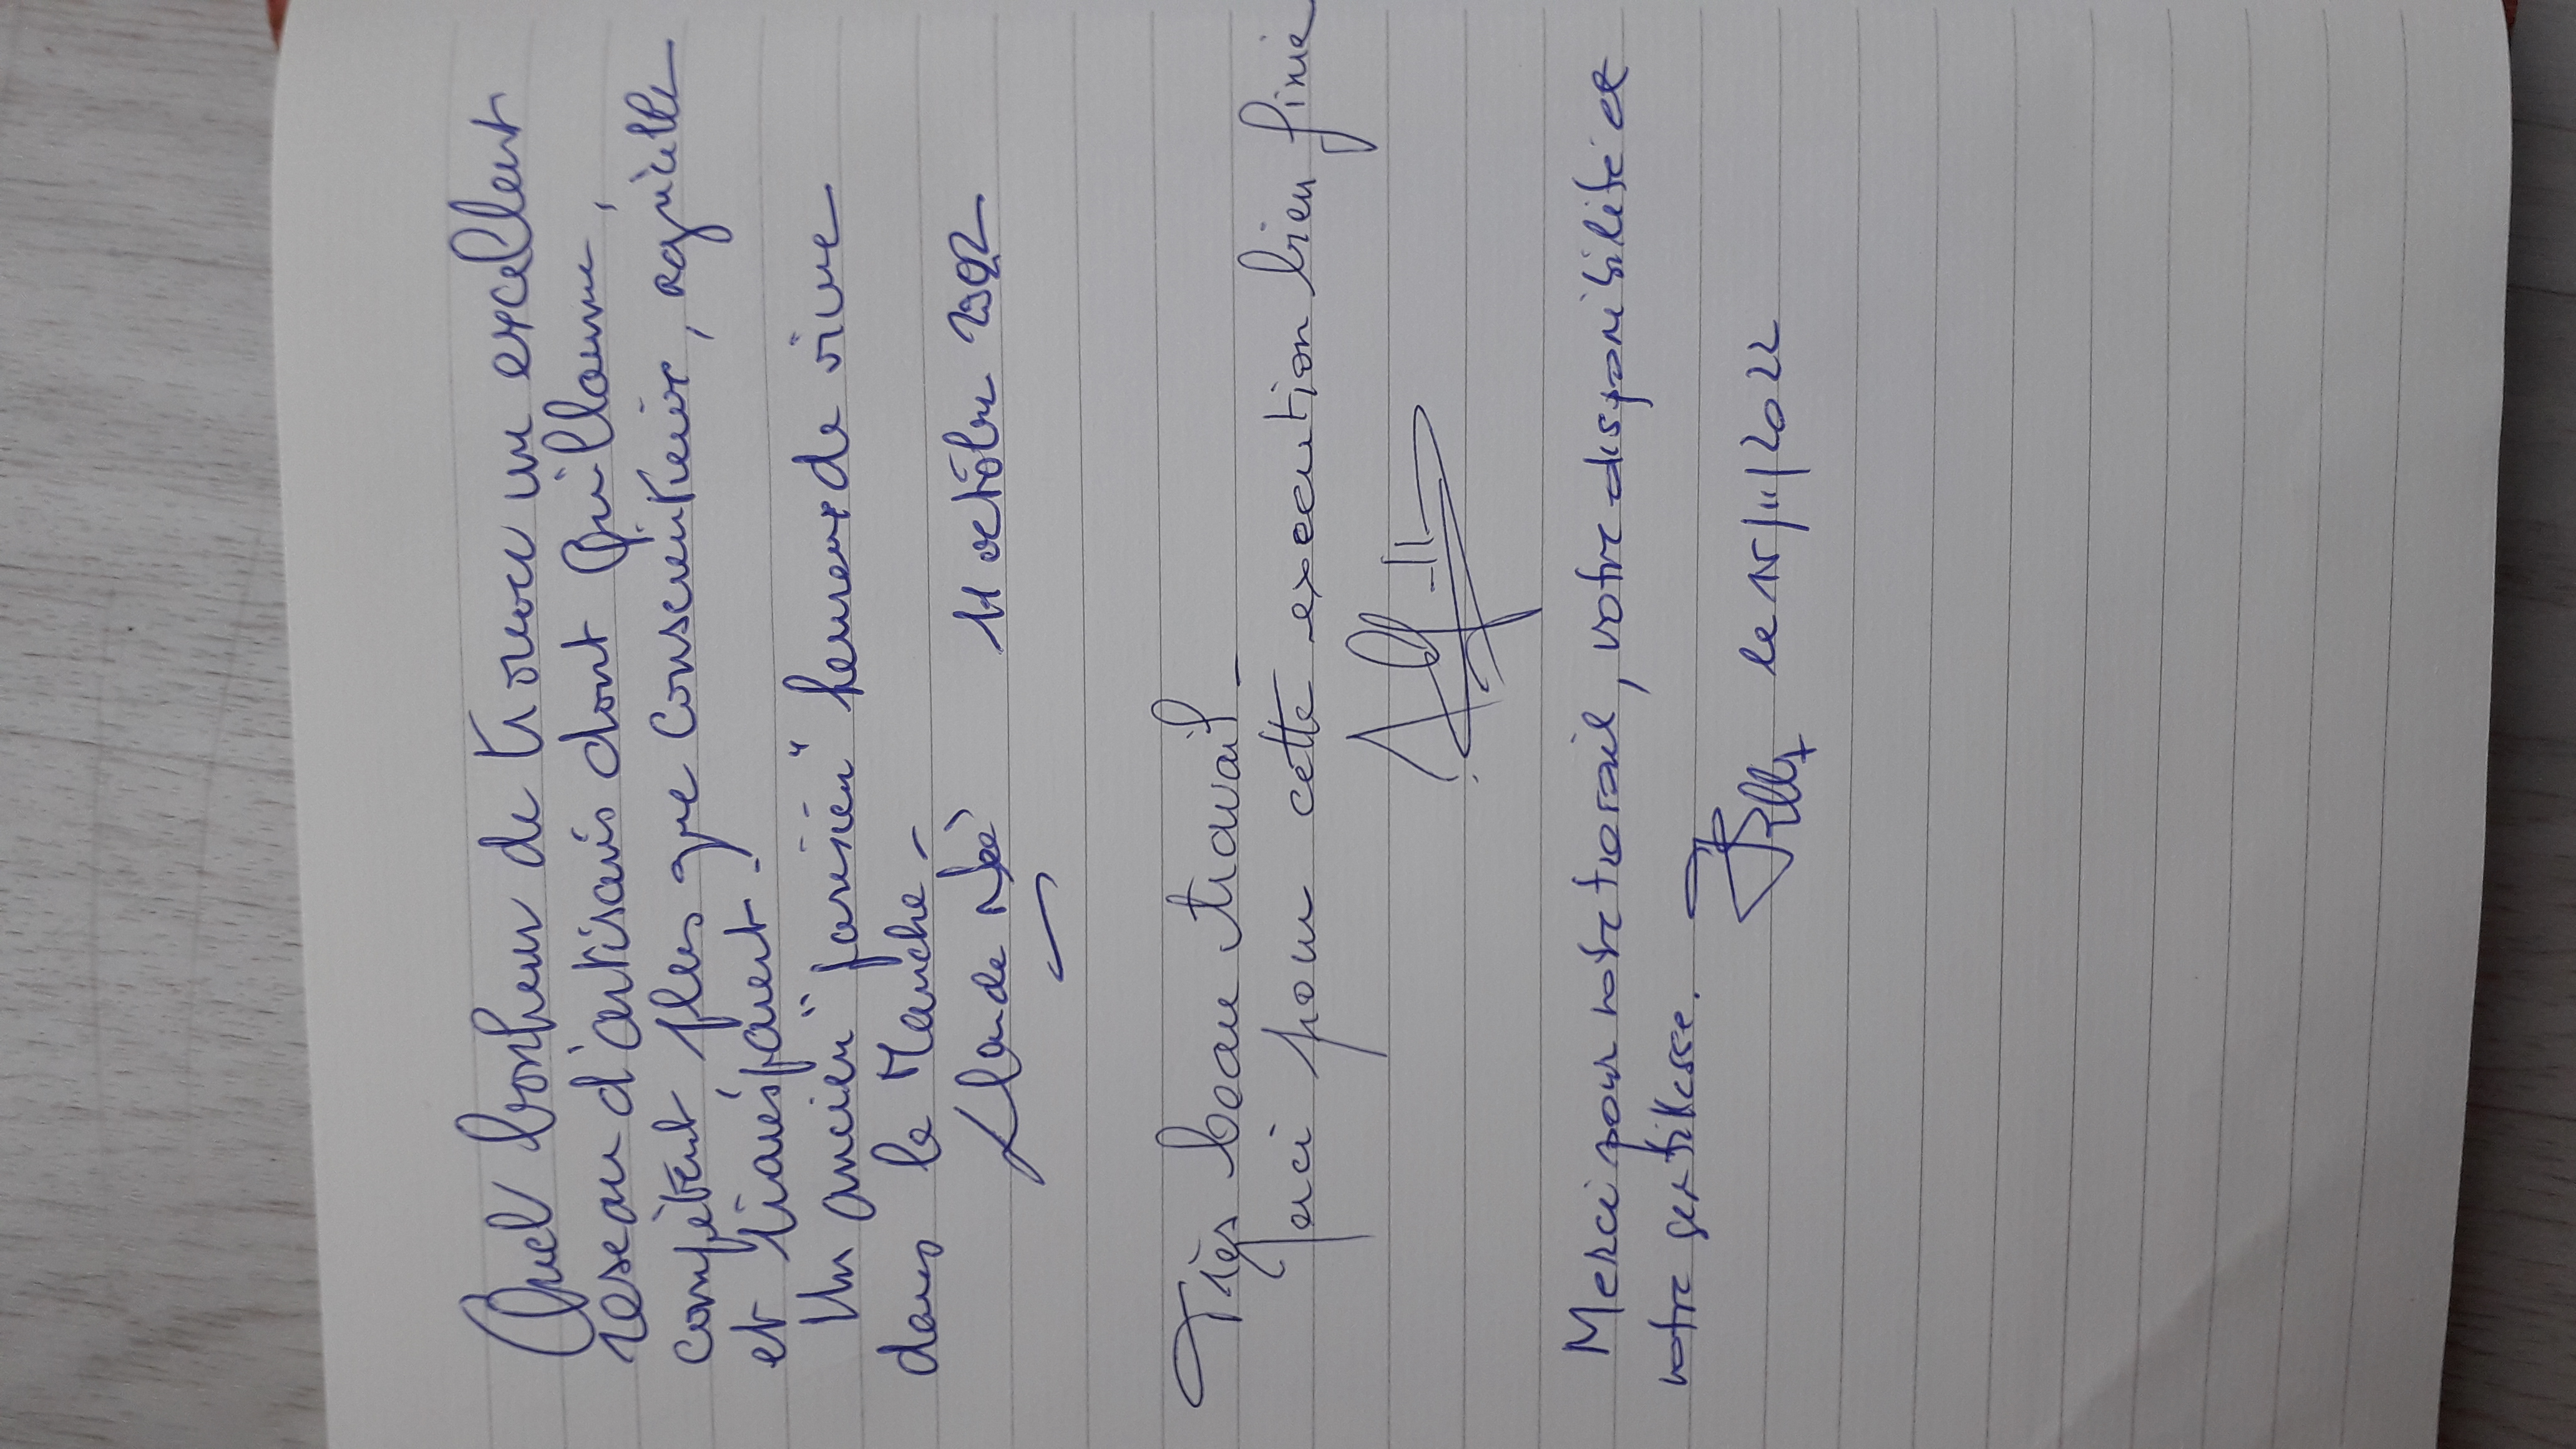 Quel bonheur de trouver un excellent
reseau d'artisans dont Guillaume,
compétent, plus que consciencieux,
et transparent -
Un ancien "parisien" heureux de vivre
dans la Manche -
Claude Née 11 octobre
Très beau travail -
Merci pour cette execution bien finie
Merci pour votre travail, votre disponibilité et
votre gentillesse.
le 15/11/2022